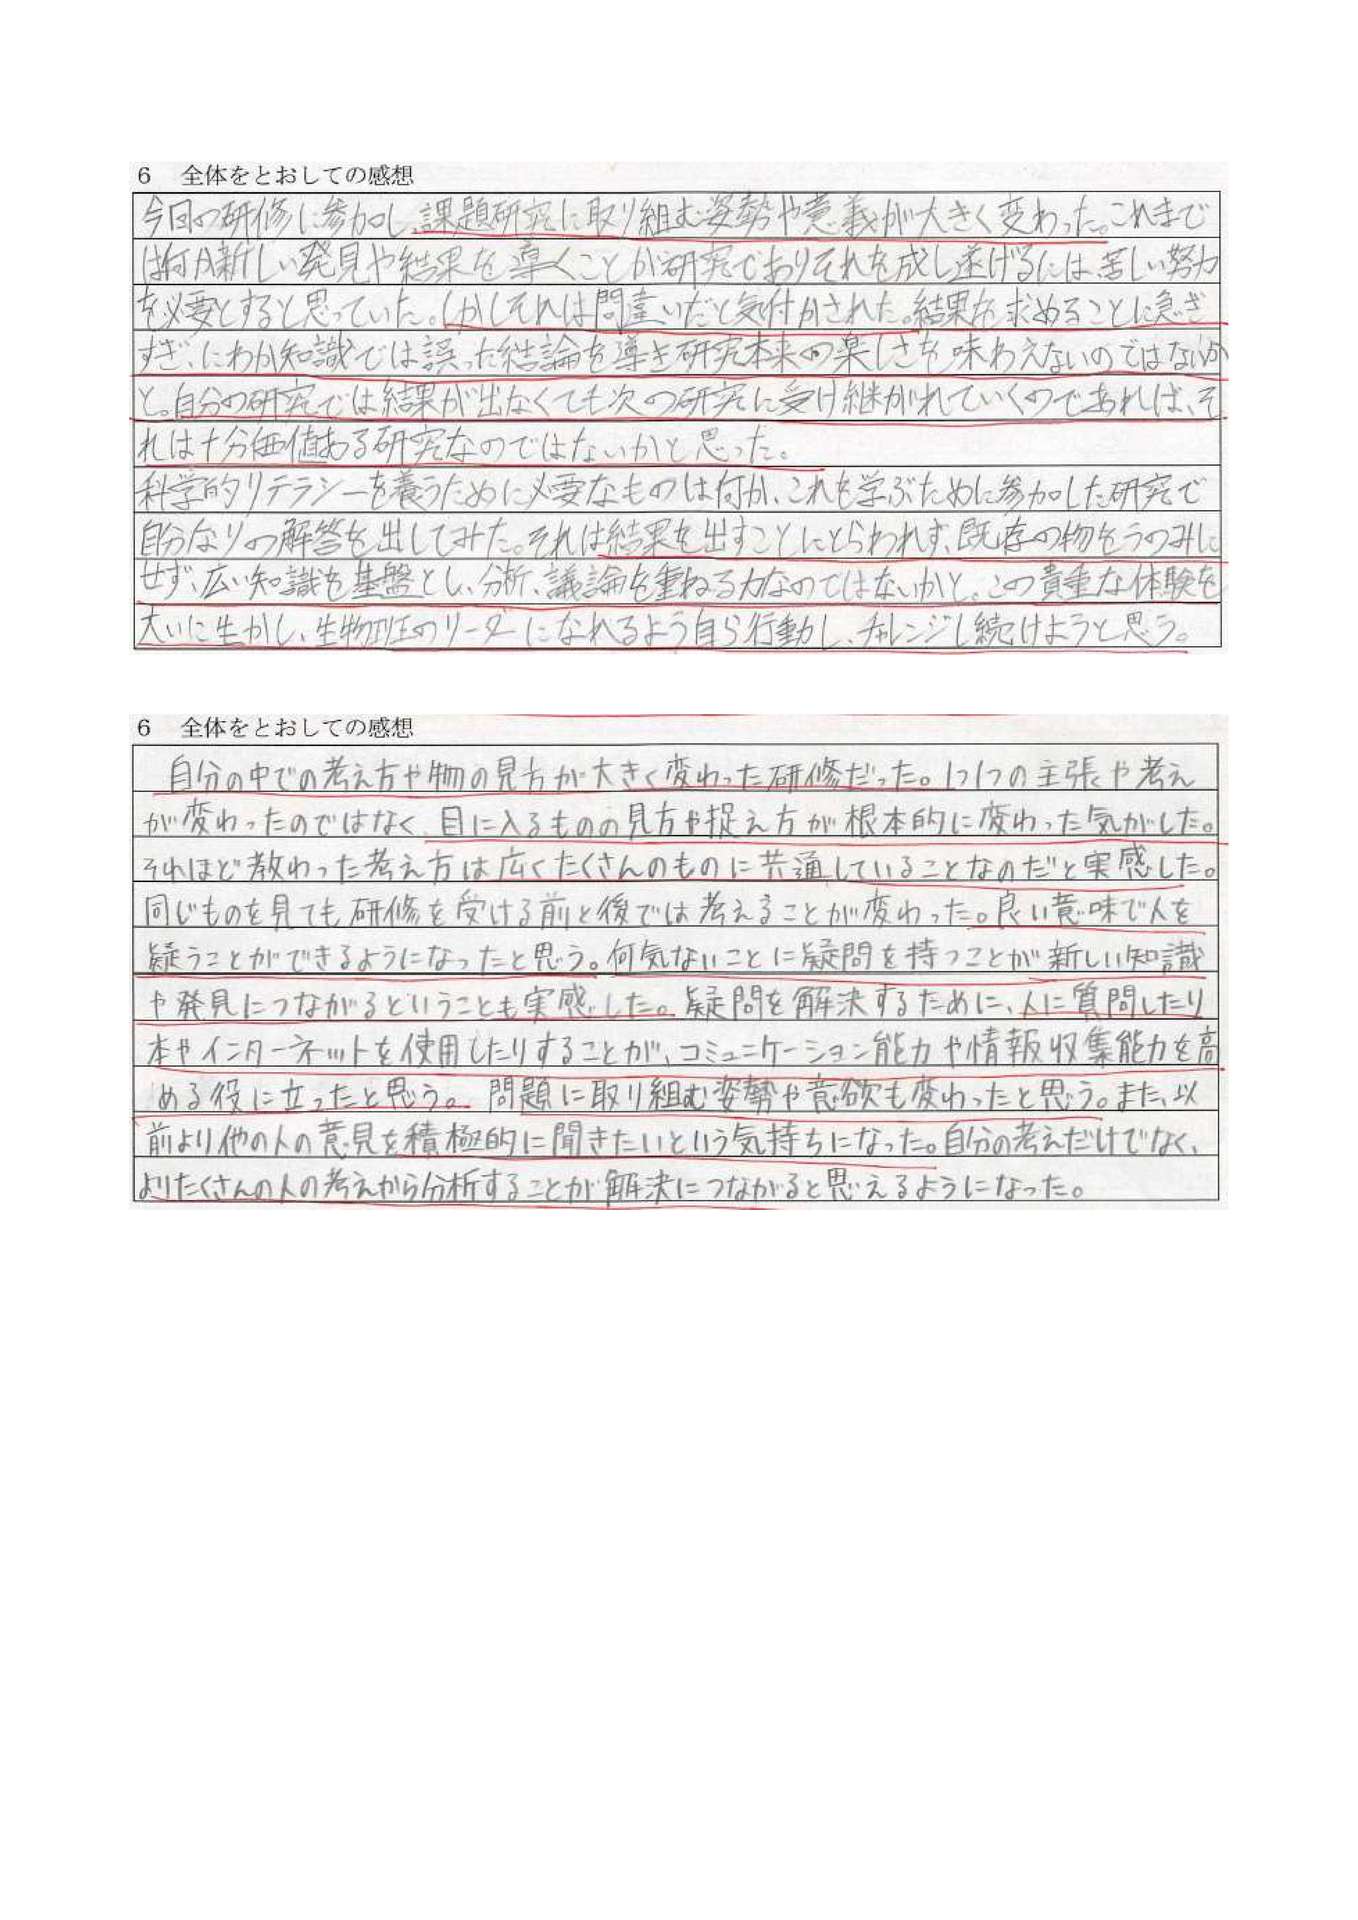 6 全体をとおしての感想
今回の研修に参加し、課題研究に取り組む姿勢や意義が大きく変わった。これまで
は何か新しい発見や結果を導くことが研究でありそれを成し遂げるには苦しい努力
を必要とすると思っていた。しかしそれは間違いだと気付かされた。結果を求めることに急ぎ
すぎ、にわか知識では誤った結論を導き研究本来の楽しさを味わえないのではないか
と。自分の研究では結果が出なくても次の研究に受け継がれていくのであれば、そ
れは十分価値ある研究なのではないかと思った。
科学的リテラシーを養うために必要なものは何か、これを学ぶために参加した研究で
自分なりの解答を出してみた。それは結果を出すことにとらわれず、既存の物をうのみに
せず、広い知識を基盤とし、分析、議論を重ねる力なのではないかと。この貴重な体験を
大いに生かし、生物班のリーダーになれるよう自ら行動し、チャレンジし続けようと思う。
6 全体をとおしての感想
自分の中での考え方や物の見方が大きく変わった研修だった。1つ1つの主張や考え
が変わったのではなく、目に入るものの見方や捉え方が根本的に変わった気がした。
それほど教わった考え方は広くたくさんのものに共通していることなのだと実感した。
同じものを見ても研修を受ける前と後では考えることが変わった。良い意味で人を
疑うことができるようになったと思う。何気ないことに疑問を持つことが新しい知識
や発見につながるということも実感した。疑問を解決するために、人に質問したり
本やインターネットを使用したりすることが、コミュニケーション能力や情報収集能力を高
める役に立ったと思う。問題に取り組む姿勢や意欲も変わったと思う。また、以
前より他の人の意見を積極的に聞きたいという気持ちになった。自分の考えだけでなく、
よりたくさんの人の考えから分析することが解決につながると思えるようになった。